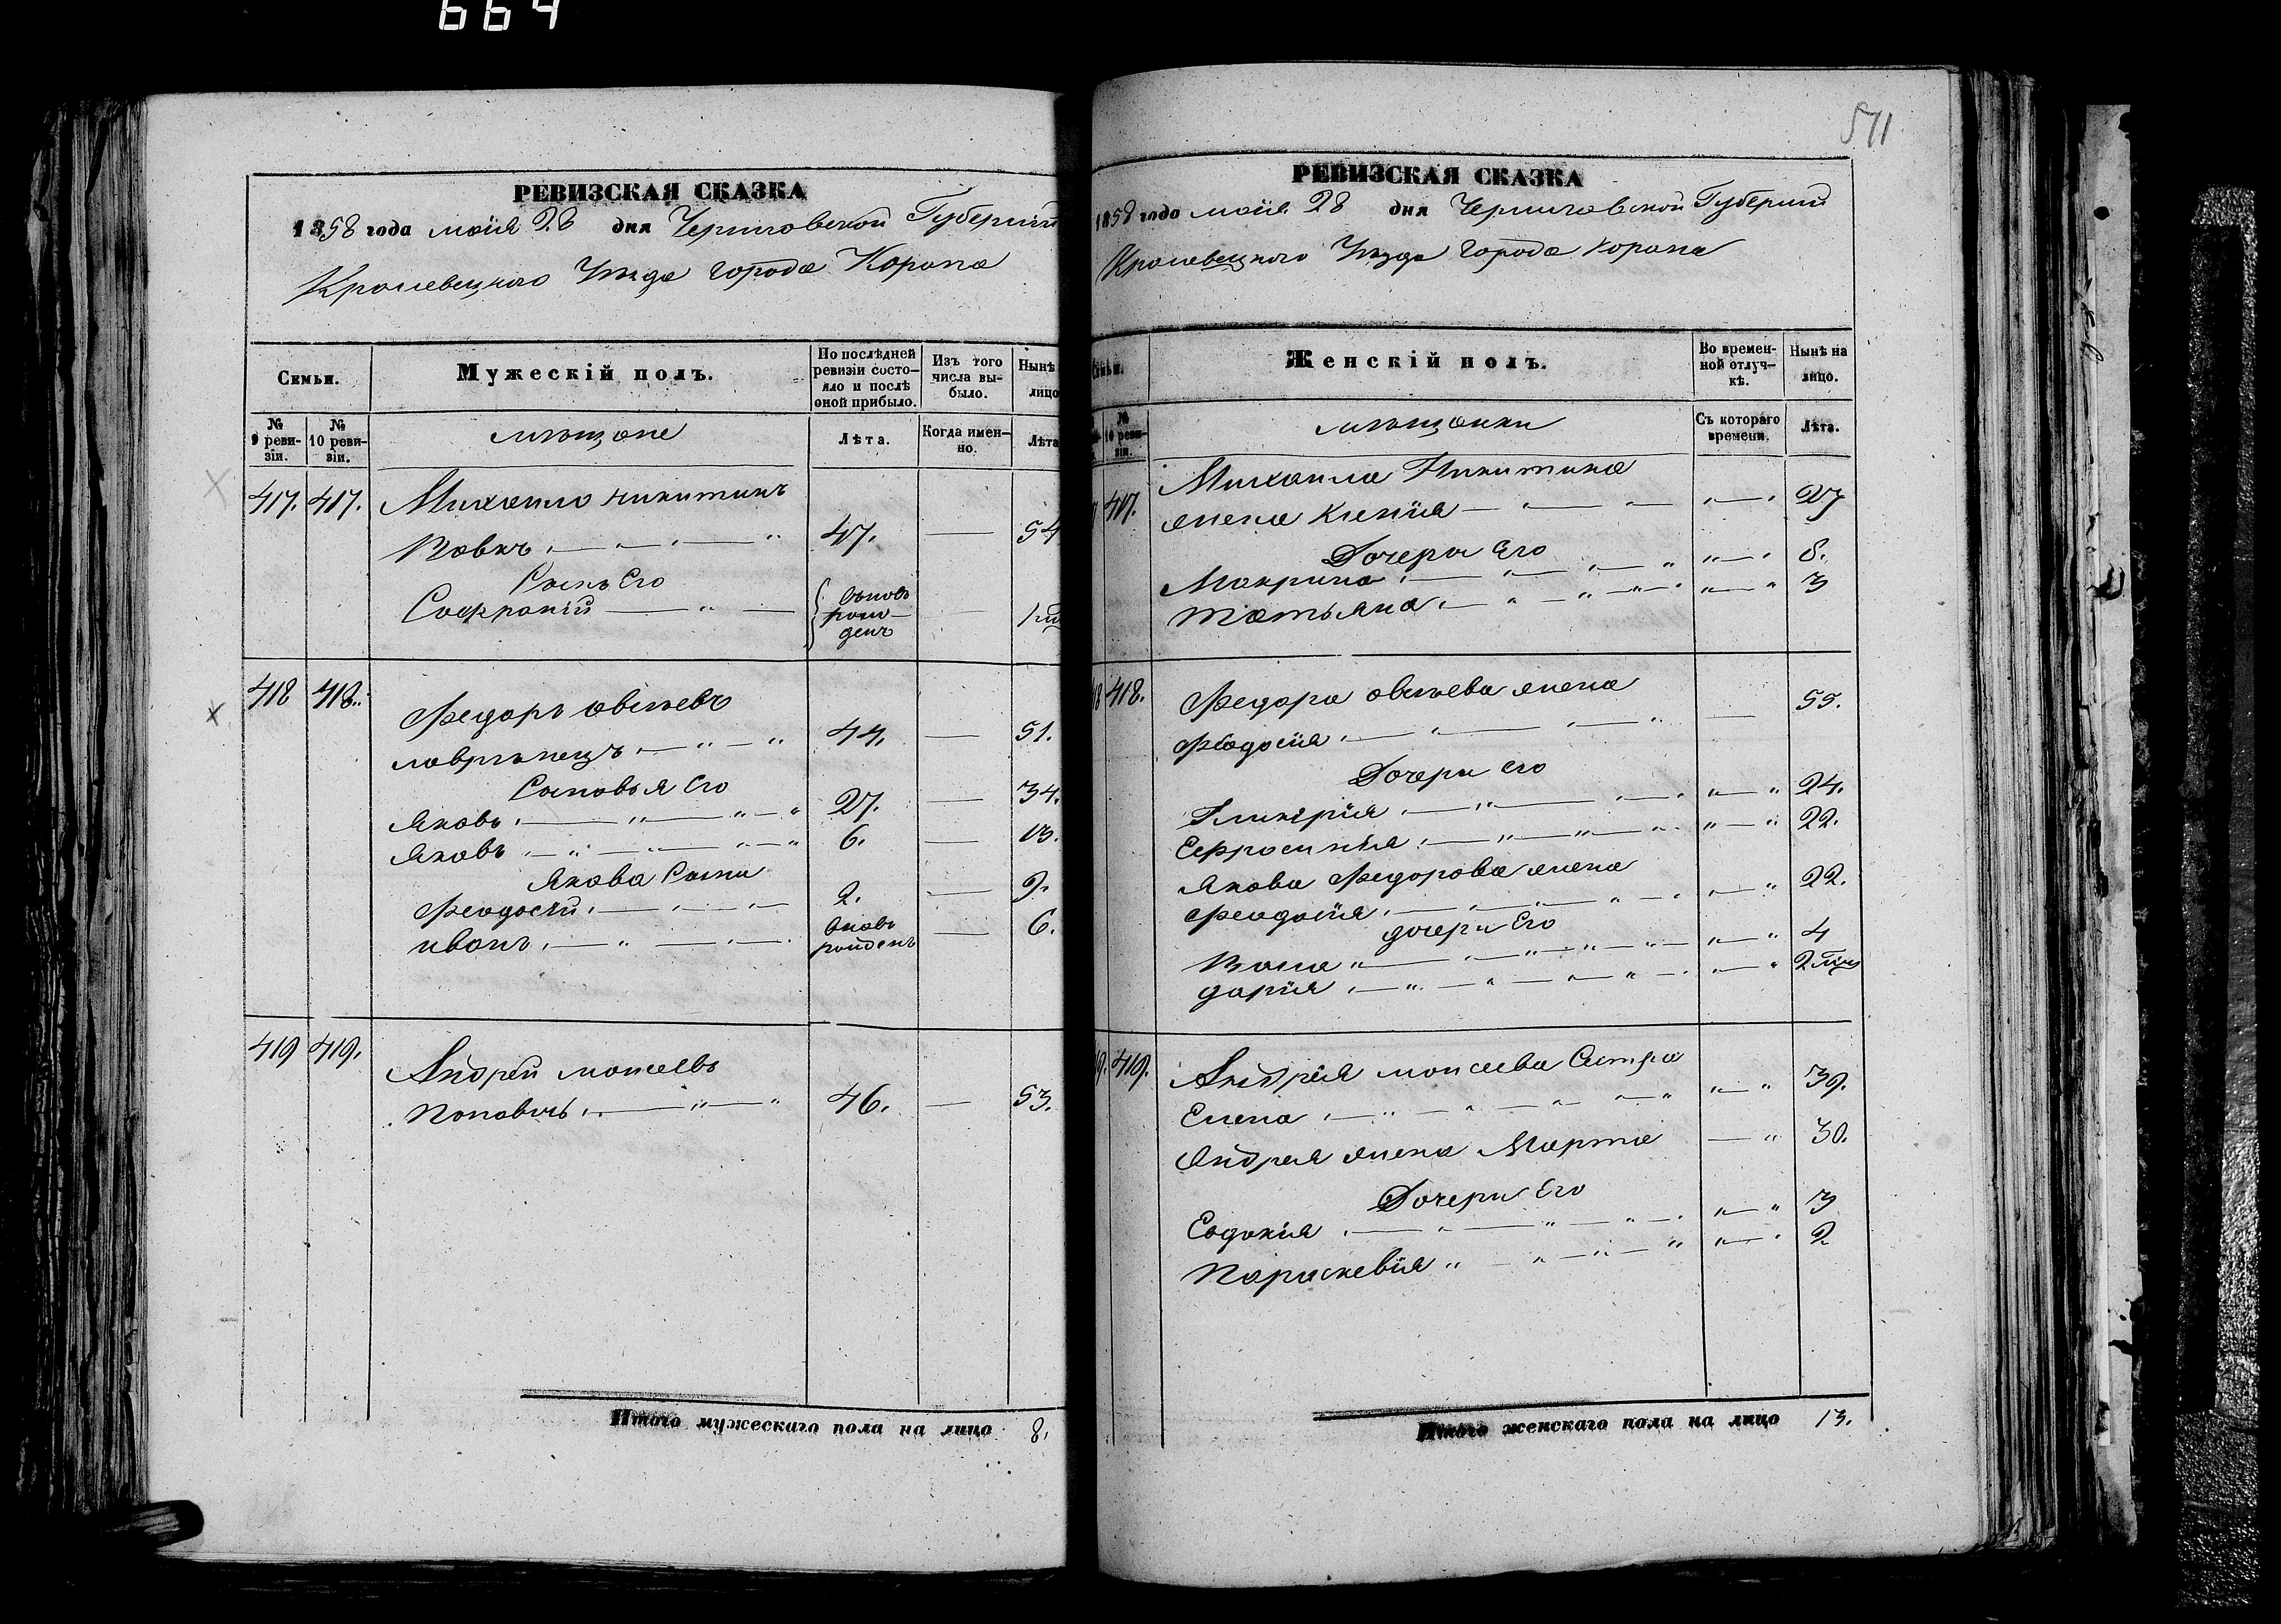 664
РЕВИЗСКАЯ СКАЗКА
1858 года маія 28 дня Черниговской Губерніи
Кролевецкого Уезда города Коропа
Семьи.
Мужескій полъ.
По послѣдней ревизіи состояло и послѣ оной прибыло.
Изъ того числа выбыло.
Нынѣ
лицо
№ 9 ревизіи.
№ 10 ревизіи.
мѣщане
Лѣта.
Когда именно.
Лѣта
417. 417. Михаило Никитинъ
47. — 54
Сынъ Его
Софроній вновь рожденъ 1
418 418. Федоръ
44. — 51.
Сыновья Его
Яковъ 27. — 34.
Яковъ 6. — 13.
Якова Сыни
Феодосій 2. — 9.
иванъ вновь рожденъ — 6.
419 419. Андрей моисеевъ
Поповичъ 46. — 53.
Итого мужескаго пола на лицо 8.
571
РЕВИЗСКАЯ СКАЗКА
1858 года маія 28 дня Черниговской Губерніи
Кролевецкого Уезда города Коропа
Женскій полъ.
Во временной отлучкѣ.
Нынѣ на лицо.
№ 10 ревизіи.
мѣщанки
Съ котораго времени.
Лѣта.
417. Михаила Никитина
жена Ксенія 27
Дочери Его
Макрина 8.
Татьяна 3
418. Федора жена
Феодосія 55.
Дочери его
Гликерія 24.
Ефросинія 22.
Якова Федорова жена
Феодосія 22.
дочери Его
4
дарія 2
419. Андрея моисеева Сестра
Елена 39.
Андрея жена Марта 30.
Дочери Его
Евдокія 3
Параскевія 2
Итого женскаго пола на лицо 13.